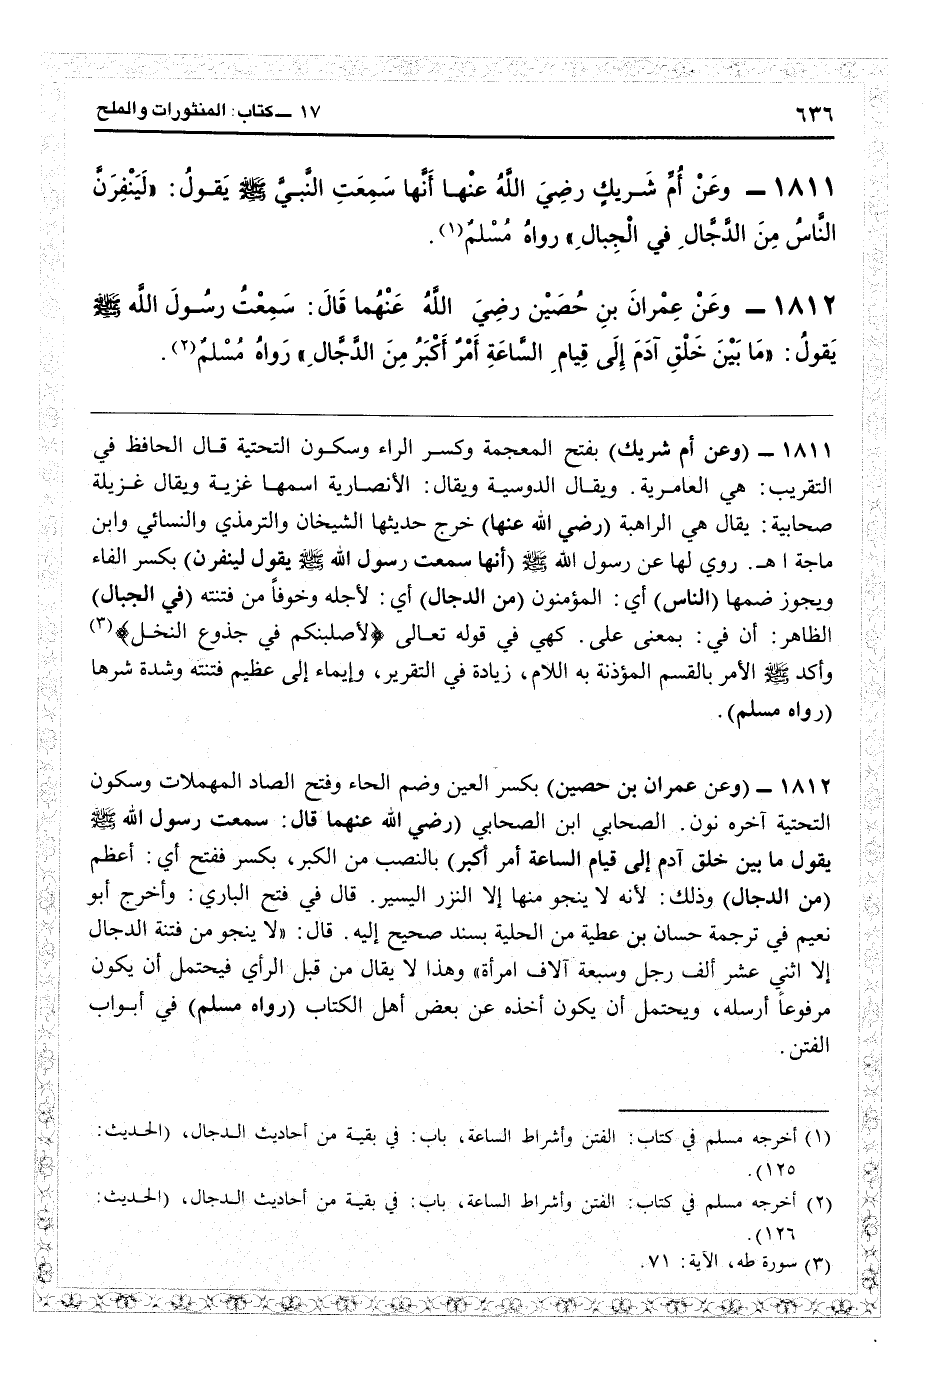 ٦٣٦
١٧ ــ كتاب: المنثورات والملح
١٨١١ ــ وعَنْ أُمِّ شَرِيكٍ رضِيَ اللَّهُ عنْهـا أَنَّها سَمِعَتِ النَّبيَّ ﷺ يَقولُ: «لَيَنْفِرَنَّ
النَّاسُ مِنَ الدَّجَّالِ في الْجِبالِ» رواهُ مُسْلمٌ(١).
١٨١٢ ــ وعَنْ عِمْرانَ بنِ حُصَيْنٍ رضِيَ اللَّهُ عَنْهُما قَالَ: سَمِعْتُ رسُولَ اللَّه ﷺ
يَقولُ: «مَا بَيْنَ خَلْقِ آدَمَ إِلَى قِيامِ السَّاعَةِ أَمْرٌ أَكْبَرُ مِنَ الدَّجَّالِ» رَواهُ مُسْلمٌ(٢).
١٨١١ ــ (وعن أم شريك) بفتح المعجمة وكسر الراء وسكون التحتية قال الحافظ في
التقريب: هي العامرية. ويقال الدوسية ويقال: الأنصارية اسمها غزية ويقال غزيلة
صحابية: يقال هي الراهبة (رضي الله عنها) خرج حديثها الشيخان والترمذي والنسائي وابن
ماجة ا هـ. روي لها عن رسول الله ﷺ (أنها سمعت رسول الله ﷺ يقول لينفرن) بكسر الفاء
ويجوز ضمها (الناس) أي: المؤمنون (من الدجال) أي: لأجله وخوفاً من فتنته (في الجبال)
الظاهر: أن في: بمعنى على. كهي في قوله تعالى ﴿لأصلبنكم في جذوع النخل﴾(٣)
وأكد ﷺ الأمر بالقسم المؤذنة به اللام، زيادة في التقرير، وإيماء إلى عظيم فتنته وشدة شرها
(رواه مسلم).
١٨١٢ ــ (وعن عمران بن حصين) بكسر العين وضم الحاء وفتح الصاد المهملات وسكون
التحتية آخره نون. الصحابي ابن الصحابي (رضي الله عنهما قال: سمعت رسول الله ﷺ
يقول ما بين خلق آدم إلى قيام الساعة أمر أكبر) بالنصب من الكبر، بكسر ففتح أي: أعظم
(من الدجال) وذلك: لأنه لا ينجو منها إلا النزر اليسير. قال في فتح الباري: وأخرج أبو
نعيم في ترجمة حسان بن عطية من الحلية بسند صحيح إليه. قال: «لا ينجو من فتنة الدجال
إلا اثني عشر ألف رجل وسبعة آلاف امرأة» وهذا لا يقال من قبل الرأي فيحتمل أن يكون
مرفوعاً أرسله، ويحتمل أن يكون أخذه عن بعض أهل الكتاب (رواه مسلم) في أبواب
الفتن.
(١) أخرجه مسلم في كتاب: الفتن وأشراط الساعة، باب: في بقية من أحاديث الدجال، (الحديث:
١٢٥).
(٢) أخرجه مسلم في كتاب: الفتن وأشراط الساعة، باب: في بقية من أحاديث الدجال، (الحديث:
١٢٦).
(٣) سورة طه، الآية: ٧١.